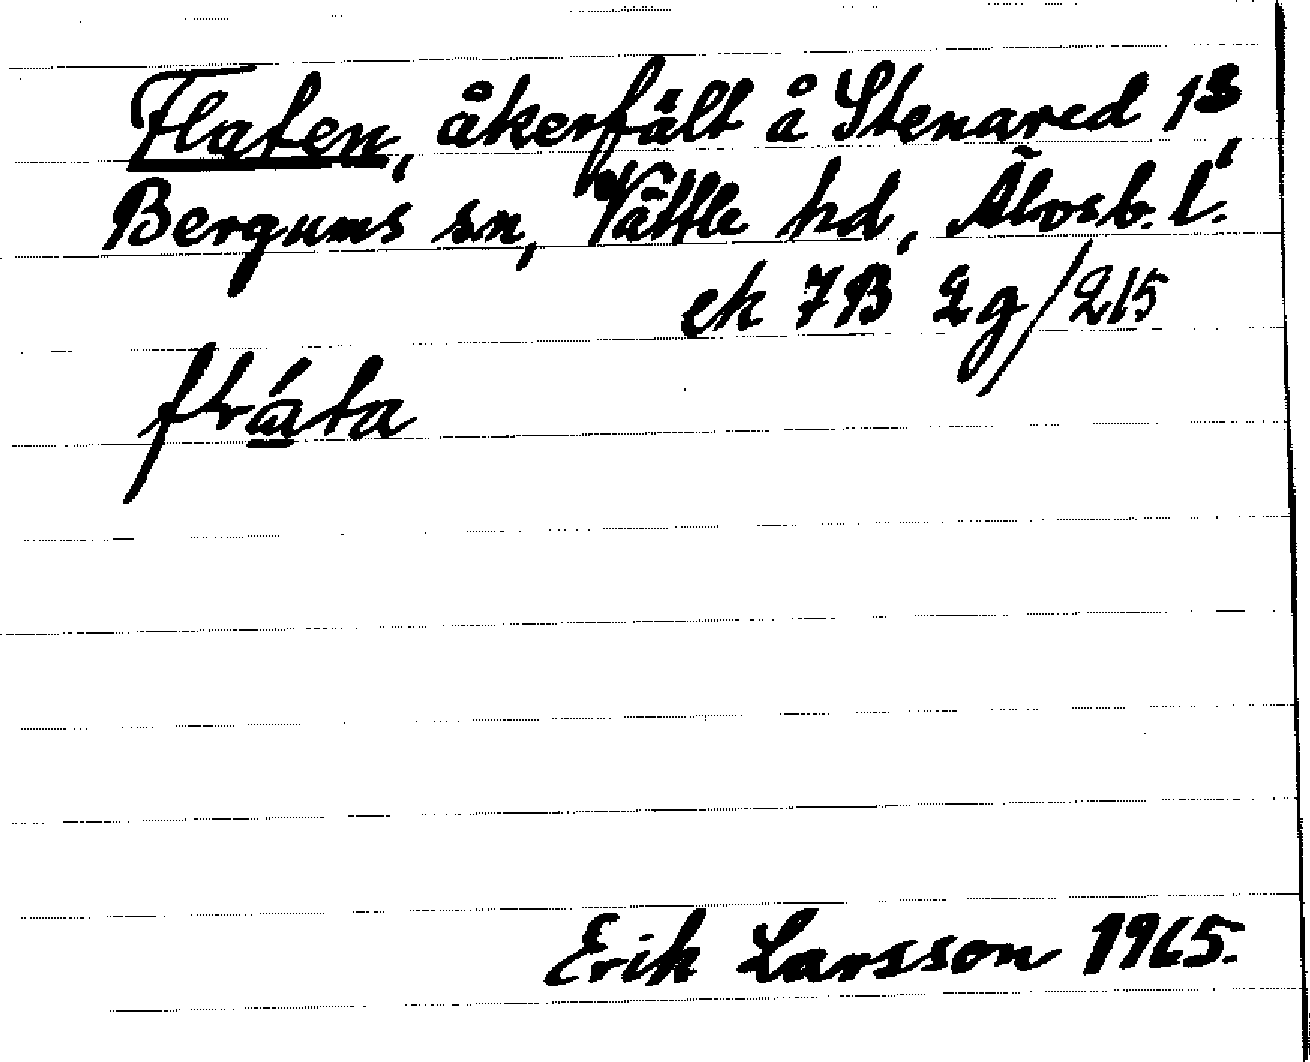 Flaten, åkerfält å Stenared 1³,
Bergums sn, Vättle hd, Älvsb. l.
ek 7B 2g/215
fláta
Erik Larsson 1965.